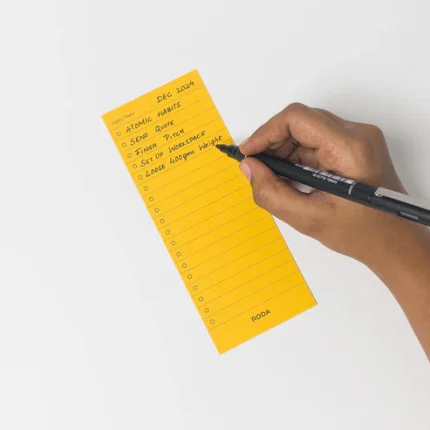 DEC 2024
ATOMIC HABITS
SEND QUOTE
FINISH PITCH
SET UP WORKSPACE
LOOSE 400gm Weight
RODA